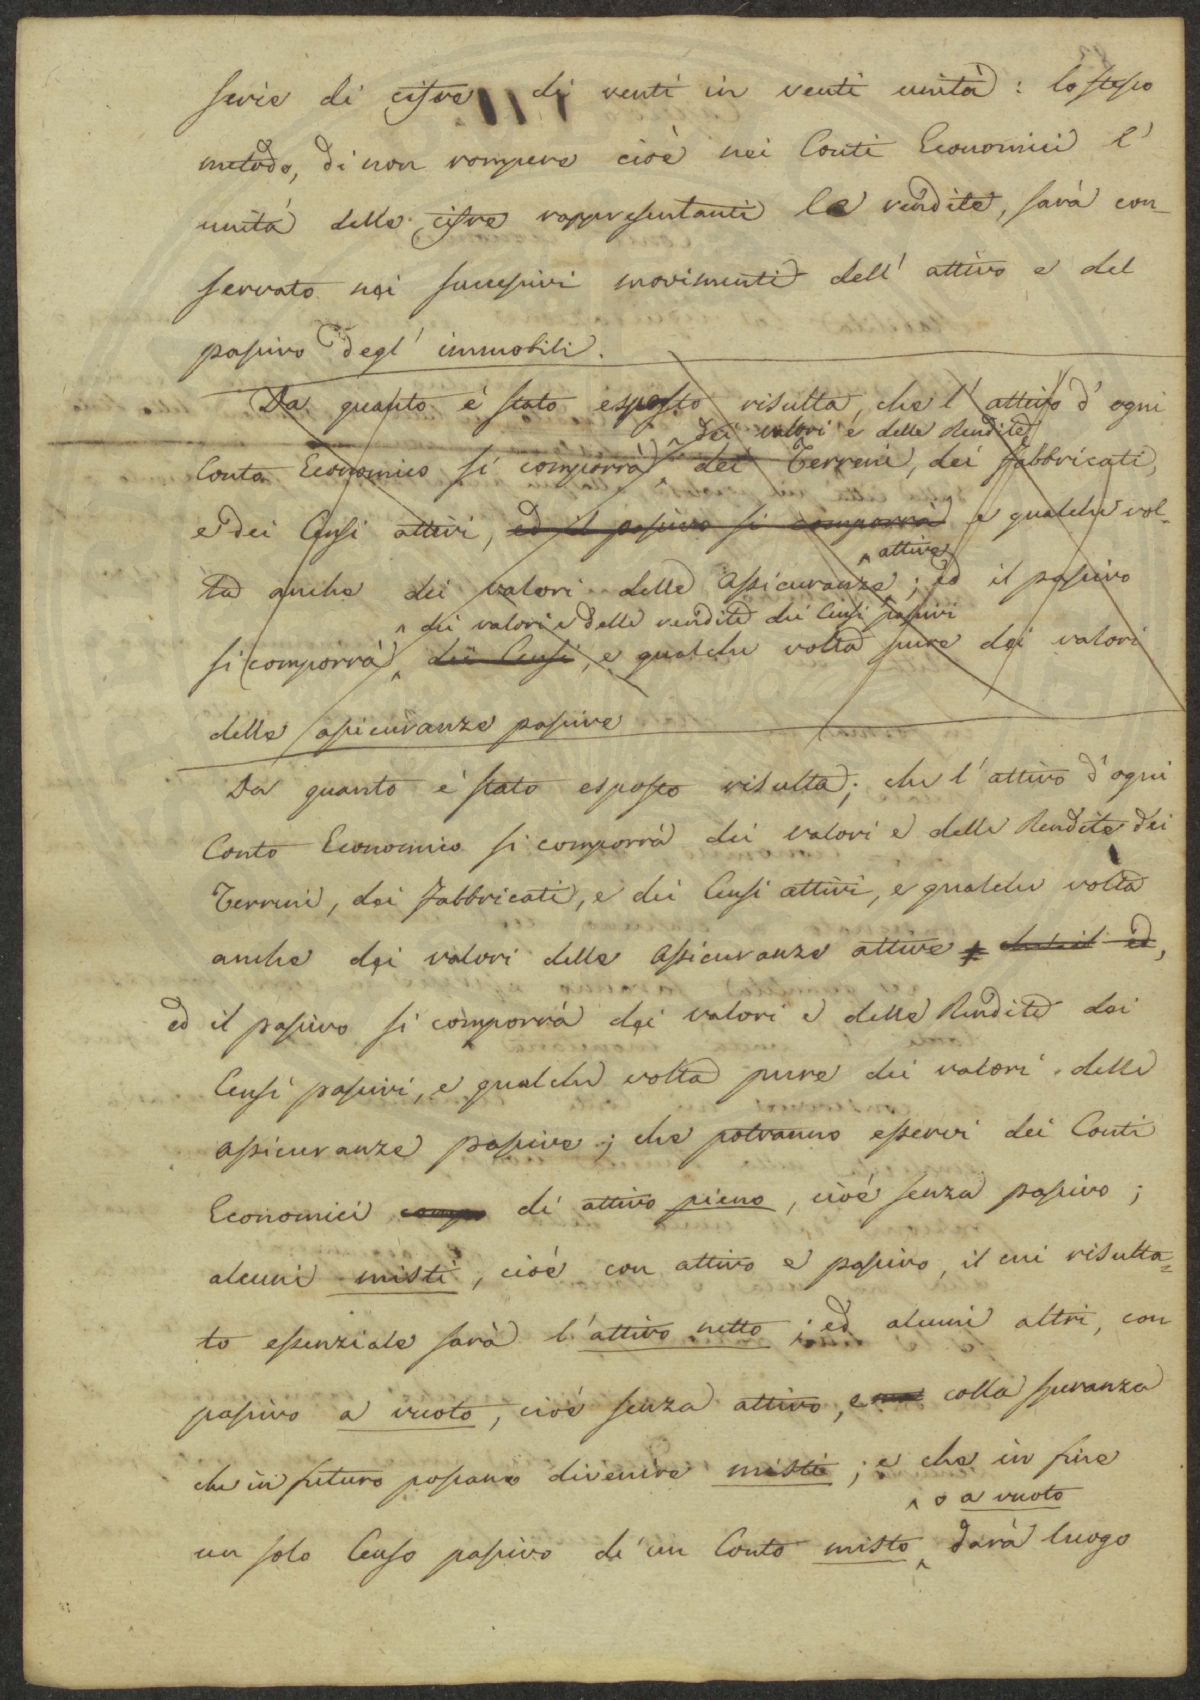 serie di cifre di venti in venti unità: lo stesso
metodo, di non rompere cioè nei Conti Economici l'
unità delle cifre rappresentanti le rendite, sarà con-
servato nei successivi movimenti dell' attivo e del
passivo degl' immobili.
Da quanto è stato esposto risulta, che l' attivo d' ogni
dei valori e delle Rendite
Conto Economico si comporrà dei Terreni, dei fabbricati,
e dei Censi attivi, ed il passivo si comporrà e qualche vol-
attive
ta anche dei valori delle assicuranze; ed il passivo
dei valori e delle rendite dei Censi passivi
si comporrà dei Censi, e qualche volta pure dei valori
delle assicuranze passive
Da quanto è stato esposto risulta; che l' attivo d' ogni
Conto Economico si comporrà dei valori e delle Rendite dei
Terreni, dei fabbricati, e dei Censi attivi, e qualche volta
anche dei valori delle assicuranze attive ed,
ed il passivo si comporrà dei valori e delle Rendite dei
Censi passivi, e qualche volta pure dei valori delle
assicuranze passive; che potranno esservi dei Conti
Economici comp di attivo pieno, cioè senza passivo;
alcuni misti, cioè con attivo e passivo, il cui risulta=
to essenziale sarà l'attivo netto; ed alcuni altri, con
passivo a vuoto, cioè senza attivo, e colla speranza
che in futuro possano divenire misti; e che in fine
o a vuoto
un solo Censo passivo di un Conto misto darà luogo